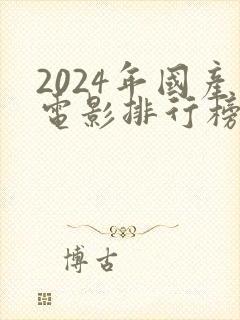 2024年國產
電影排行榜
博古